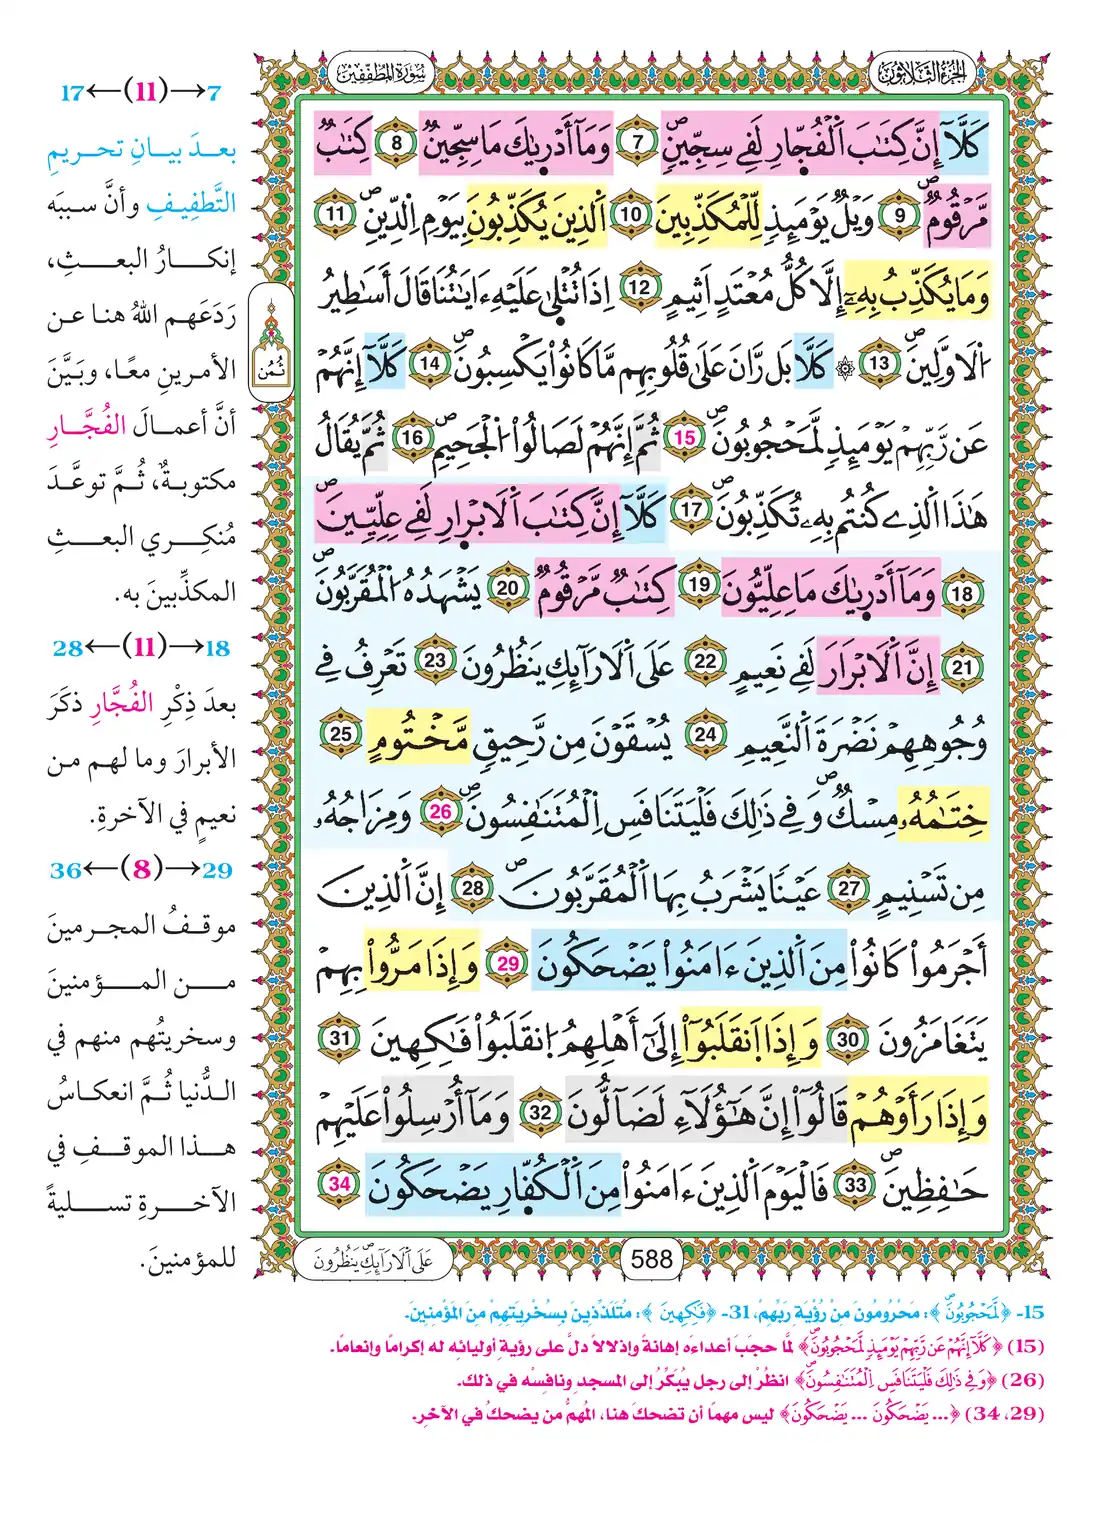 الجزء الثلاثون
سورة المطففين
كَلَّآ إِنَّ كِتَٰبَ اَ۬لْفُجّ۪ارِ لَفِے سِجِّينٖۖ 7 وَمَآ أَدْر۪يٰكَ مَا سِجِّينٞۖ 8 كِتَٰبٞ
مَّرْقُومٞۖ 9 وَيْلٞ يَوْمَئِذٖ لِّلْمُكَذِّبِينَ 10 اَ۬لذِينَ يُكَذِّبُونَ بِيَوْمِ اِ۬لدِّينِۖ 11
وَمَا يُكَذِّبُ بِهِۦٓ إِلَّا كُلُّ مُعْتَدٍ اَثِيمٍ 12 اِذَا تُتْلَىٰ عَلَيْهِ ءَايَٰتُنَا قَالَ أَسَٰطِيرُ
اُ۬لَاوَّلِينَۖ 13 ۞ كَلَّا بَل رَّانَ عَلَىٰ قُلُوبِهِم مَّا كَانُواْ يَكْسِبُونَۖ 14 كَلَّآ إِنَّهُمْ
عَن رَّبِّهِمْ يَوْمَئِذٖ لَّمَحْجُوبُونَۖ 15 ثُمَّ إِنَّهُمْ لَصَالُواْ اُ۬لْجَحِيمِۖ 16 ثُمَّ يُقَالُ
هَٰذَا اَ۬لذِے كُنتُم بِهِۦ تُكَذِّبُونَۖ 17 كَلَّآ إِنَّ كِتَٰبَ اَ۬لَابْر۪ارِ لَفِے عِلِّيِّينَۖ
18 وَمَآ أَدْر۪يٰكَ مَا عِلِّيُّونَۖ 19 كِتَٰبٞ مَّرْقُومٞ 20 يَشْهَدُهُ اُ۬لْمُقَرَّبُونَۖ
21 إِنَّ اَ۬لَابْرَارَ لَفِے نَعِيمٍ 22 عَلَى اَ۬لَارَآئِكِ يَنظُرُونَ 23 تَعْرِفُ فِے
وُجُوهِهِمْ نَضْرَةَ اَ۬لنَّعِيمِ 24 يُسْقَوْنَ مِن رَّحِيقٖ مَّخْتُومٍ 25
خِتَٰمُهُۥ مِسْكٞۖ وَفِے ذَٰلِكَ فَلْيَتَنَافَسِ اِ۬لْمُتَنَٰفِسُونَۖ 26 وَمِزَاجُهُۥ
مِن تَسْنِيمٍ 27 عَيْنٗا يَشْرَبُ بِهَا اَ۬لْمُقَرَّبُونَۖ 28 إِنَّ اَ۬لذِينَ
أَجْرَمُواْ كَانُواْ مِنَ اَ۬لذِينَ ءَامَنُواْ يَضْحَكُونَ 29 وَإِذَا مَرُّواْ بِهِمْ
يَتَغَامَزُونَ 30 وَإِذَا اَ۪نقَلَبُوٓاْ إِلَىٰٓ أَهْلِهِمُ اُ۪نقَلَبُواْ فَٰكِهِينَ 31
وَإِذَا رَأَوْهُمْ قَالُوٓاْ إِنَّ هَٰٓؤُلَآءِ لَضَآلُّونَ 32 وَمَآ أُرْسِلُواْ عَلَيْهِمْ
حَٰفِظِينَۖ 33 فَالْيَوْمَ اَ۬لذِينَ ءَامَنُواْ مِنَ اَ۬لْكُفّ۪ارِ يَضْحَكُونَ 34
عَلَى اَ۬لَارَآئِكِۖ يَنظُرُونَ
588
ثُمُن
7→(11)←17
بعدَ بيانِ تحريمِ
التَّطفِيفِ وأنَّ سببَه
إنكارُ البعثِ،
رَدَعَهم اللهُ هنا عن
الأمرينِ معًا، وبَيَّنَ
أنَّ أعمالَ الفُجَّارِ
مكتوبةٌ، ثُمَّ توعَّدَ
مُنكِري البعثِ
المكذِّبينَ به.
18→(11)←28
بعدَ ذِكْرِ الفُجَّارِ ذكَرَ
الأبرارَ وما لهم من
نعيمٍ في الآخرةِ.
29→(8)←36
موقفُ المجرمينَ
من المؤمنينَ
وسخريتُهم منهم في
الدُّنيا ثُمَّ انعكاسُ
هذا الموقفِ في
الآخرةِ تسليةً
للمؤمنينَ.
15- ﴿لَّمَحْجُوبُونَۖ﴾: مَحْرُومُونَ مِنْ رُؤْيَةِ رَبِّهِمْ، 31- ﴿فَٰكِهِينَ﴾: مُتَلَذِّذِينَ بِسُخْرِيَتِهِمْ مِنَ المُؤْمِنِينَ.
(15) ﴿كَلَّآ إِنَّهُمْ عَن رَّبِّهِمْ يَوْمَئِذٖ لَّمَحْجُوبُونَۖ﴾ لمَّا حجَبَ أعداءَه إهانةً وإذلالاً دلَّ على رؤيةِ أوليائِه له إكرامًا وإنعامًا.
(26) ﴿وَفِے ذَٰلِكَ فَلْيَتَنَافَسِ اِ۬لْمُتَنَٰفِسُونَۖ﴾ انظُرْ إلى رجل يُبَكِّرُ إلى المسجدِ ونافِسْه في ذلك.
(29، 34) ﴿... يَضْحَكُونَ ... يَضْحَكُونَ﴾ ليس مهمًا أن تضحكَ هنا، المُهمُّ من يضحكُ في الآخرِ.